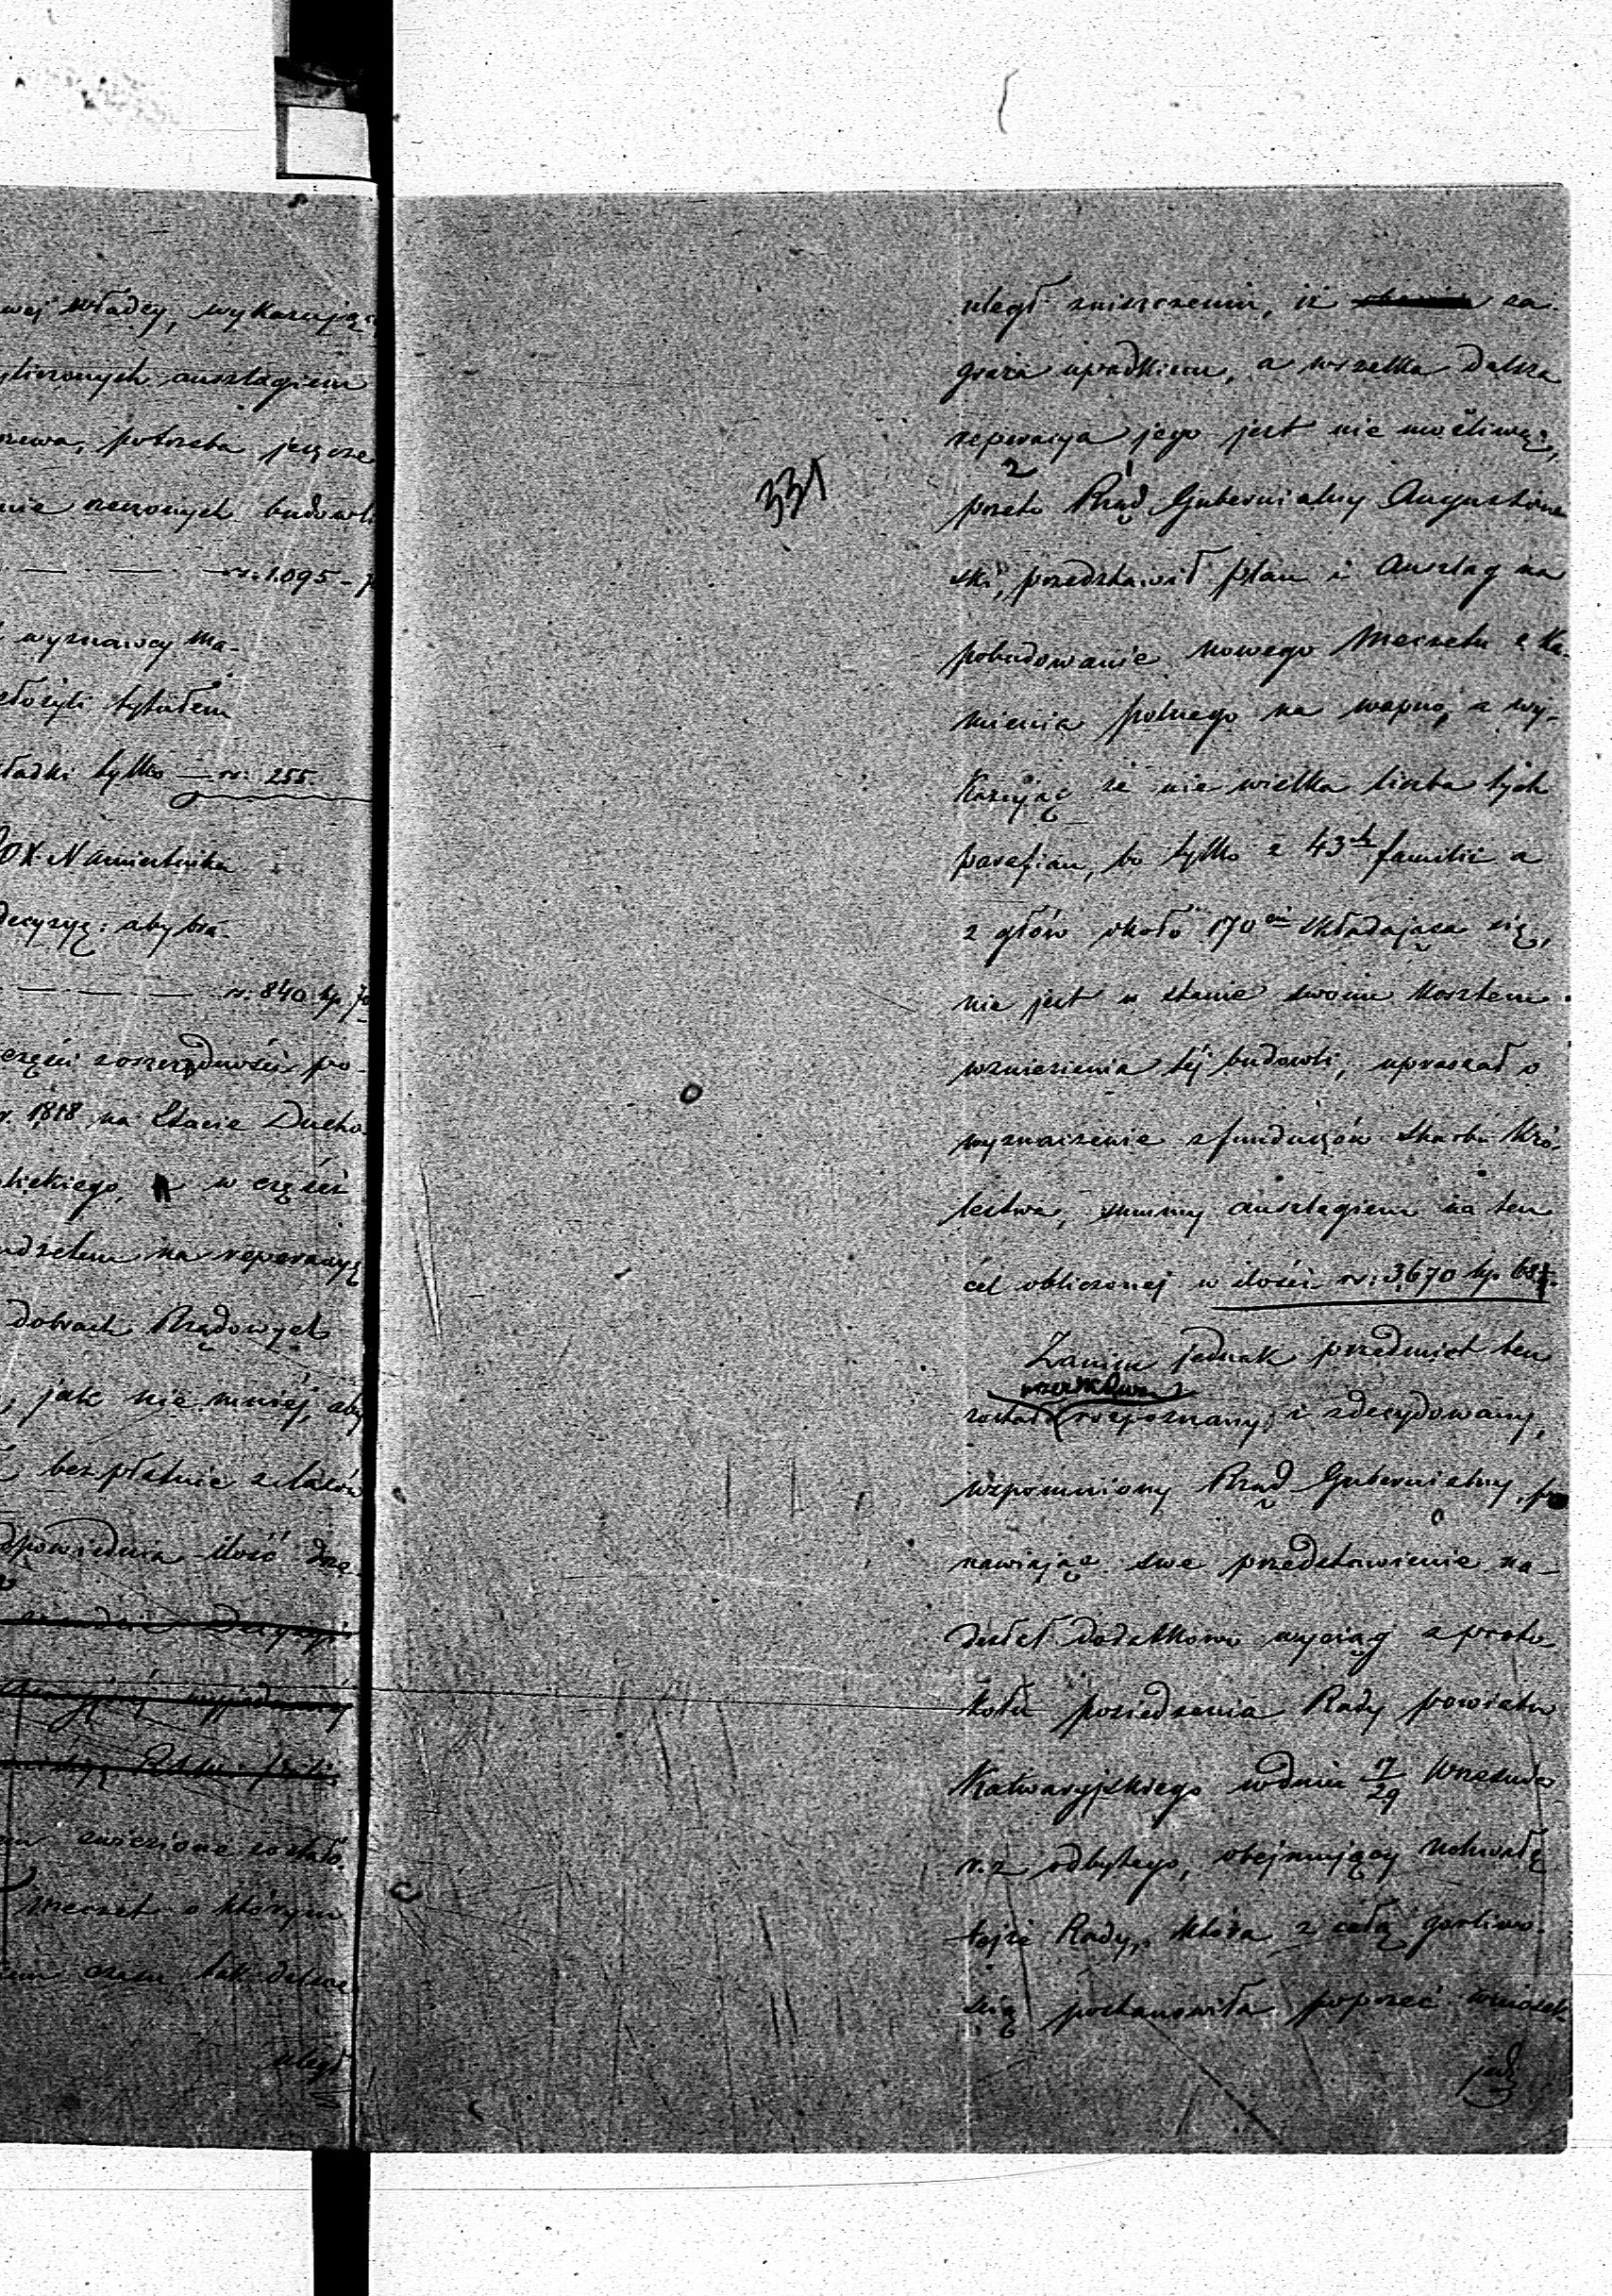 wej władzy, wykazując
potrzeba jeszcze
nie rzeczonych budowli
rs. 1.095 -
wyznawcy Ma-
złożyli tytułem
składki tylko — rs. 255
JOX. Namiestnika
decyzyę: aby bra-
rs. 840 kp. 70
części z oszczędności po-
r. 1818 na Etacie Ducho
w części
na reperacyę
dobrach Rządowych
, jak nie mniej, aby
bezpłatnie z lasów
odpowiednia ilość drze
zniesione zostało.
meczet o którym
uległ
331
uległ zniszczeniu, iż za-
graża upadkiem, a wszelka dalsza
reperacya jego jest nie możliwą;
przeto Rząd Gubernialny Augustow
ski, przedstawił plan i Anszlag na
pobudowanie nowego Meczetu z Ka-
mienia polnego na wapno, a wy-
kazując że nie wielka liczba tych
parafian, bo tylko z 43ch familii a
z głów około 170ciu składająca się,
nie jest w stanie swoim kosztem
wzniesienia téj budowli, upraszał o
wyznaczenie z funduszów Skarbu Kró-
lestwa, summy anszlagiem na ten
cel obliczonej w ilości rs: 3,670 kp. 68½.
Zanim jednak przedmiot ten
został rozpoznany i zdecydowany,
wspomniony Rząd Gubernialny, po
nawiając swe przedstawienie na-
desłał dodatkowo wyciąg z proto-
kółu posiedzenia Rady powiatu
Kalwaryjskiego w dniu 17/29 Września
r. z odbytego, obejmujący uchwałę
tejże Rady, która z całą gorliwo-
ścią postanowiła poprzeć wniosek